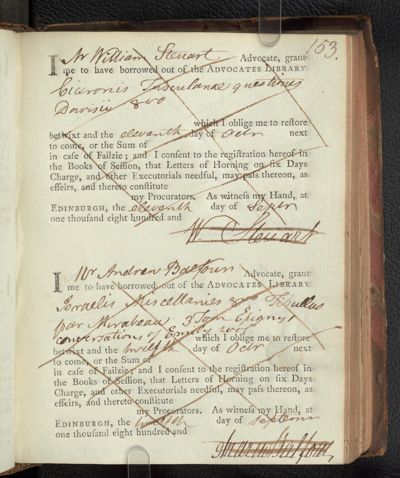 153.
I Mr William Steuart Advocate, grant
me to have borrowed out of the ADVOCATES LIBRARY
Ciceronis Tusculanae questiones
Davisii 8vo
which I oblige me to restore
betwixt and the eleventh day of Octr next
to come, or the Sum of
in case of Failzie; and I consent to the registration hereof in
the Books of Session, that Letters of Horning on six Days
Charge, and other Executorials needful, may pass thereon, as
effeirs, and thereto constitute
my Procurators. As witness my Hand, at
EDINBURGH, the eleventh day of Septr
one thousand eight hundred and
W. Steuart
I Mr Andrew Balfour Advocate, grant
me to have borrowed out of the ADVOCATES LIBRARY
Israelis Miscellanies 8vo Tibullus
par Mirabeau 3 Tom
conversations of Emily 2 vols
which I oblige me to restore
betwixt and the twelfth day of Octr next
to come, or the Sum of
in case of Failzie; and I consent to the registration hereof in
the Books of Session, that Letters of Horning on six Days
Charge, and other Executorials needful, may pass thereon, as
effeirs, and thereto constitute
my Procurators. As witness my Hand, at
EDINBURGH, the twelfth day of
one thousand eight hundred and
Andrew Balfour